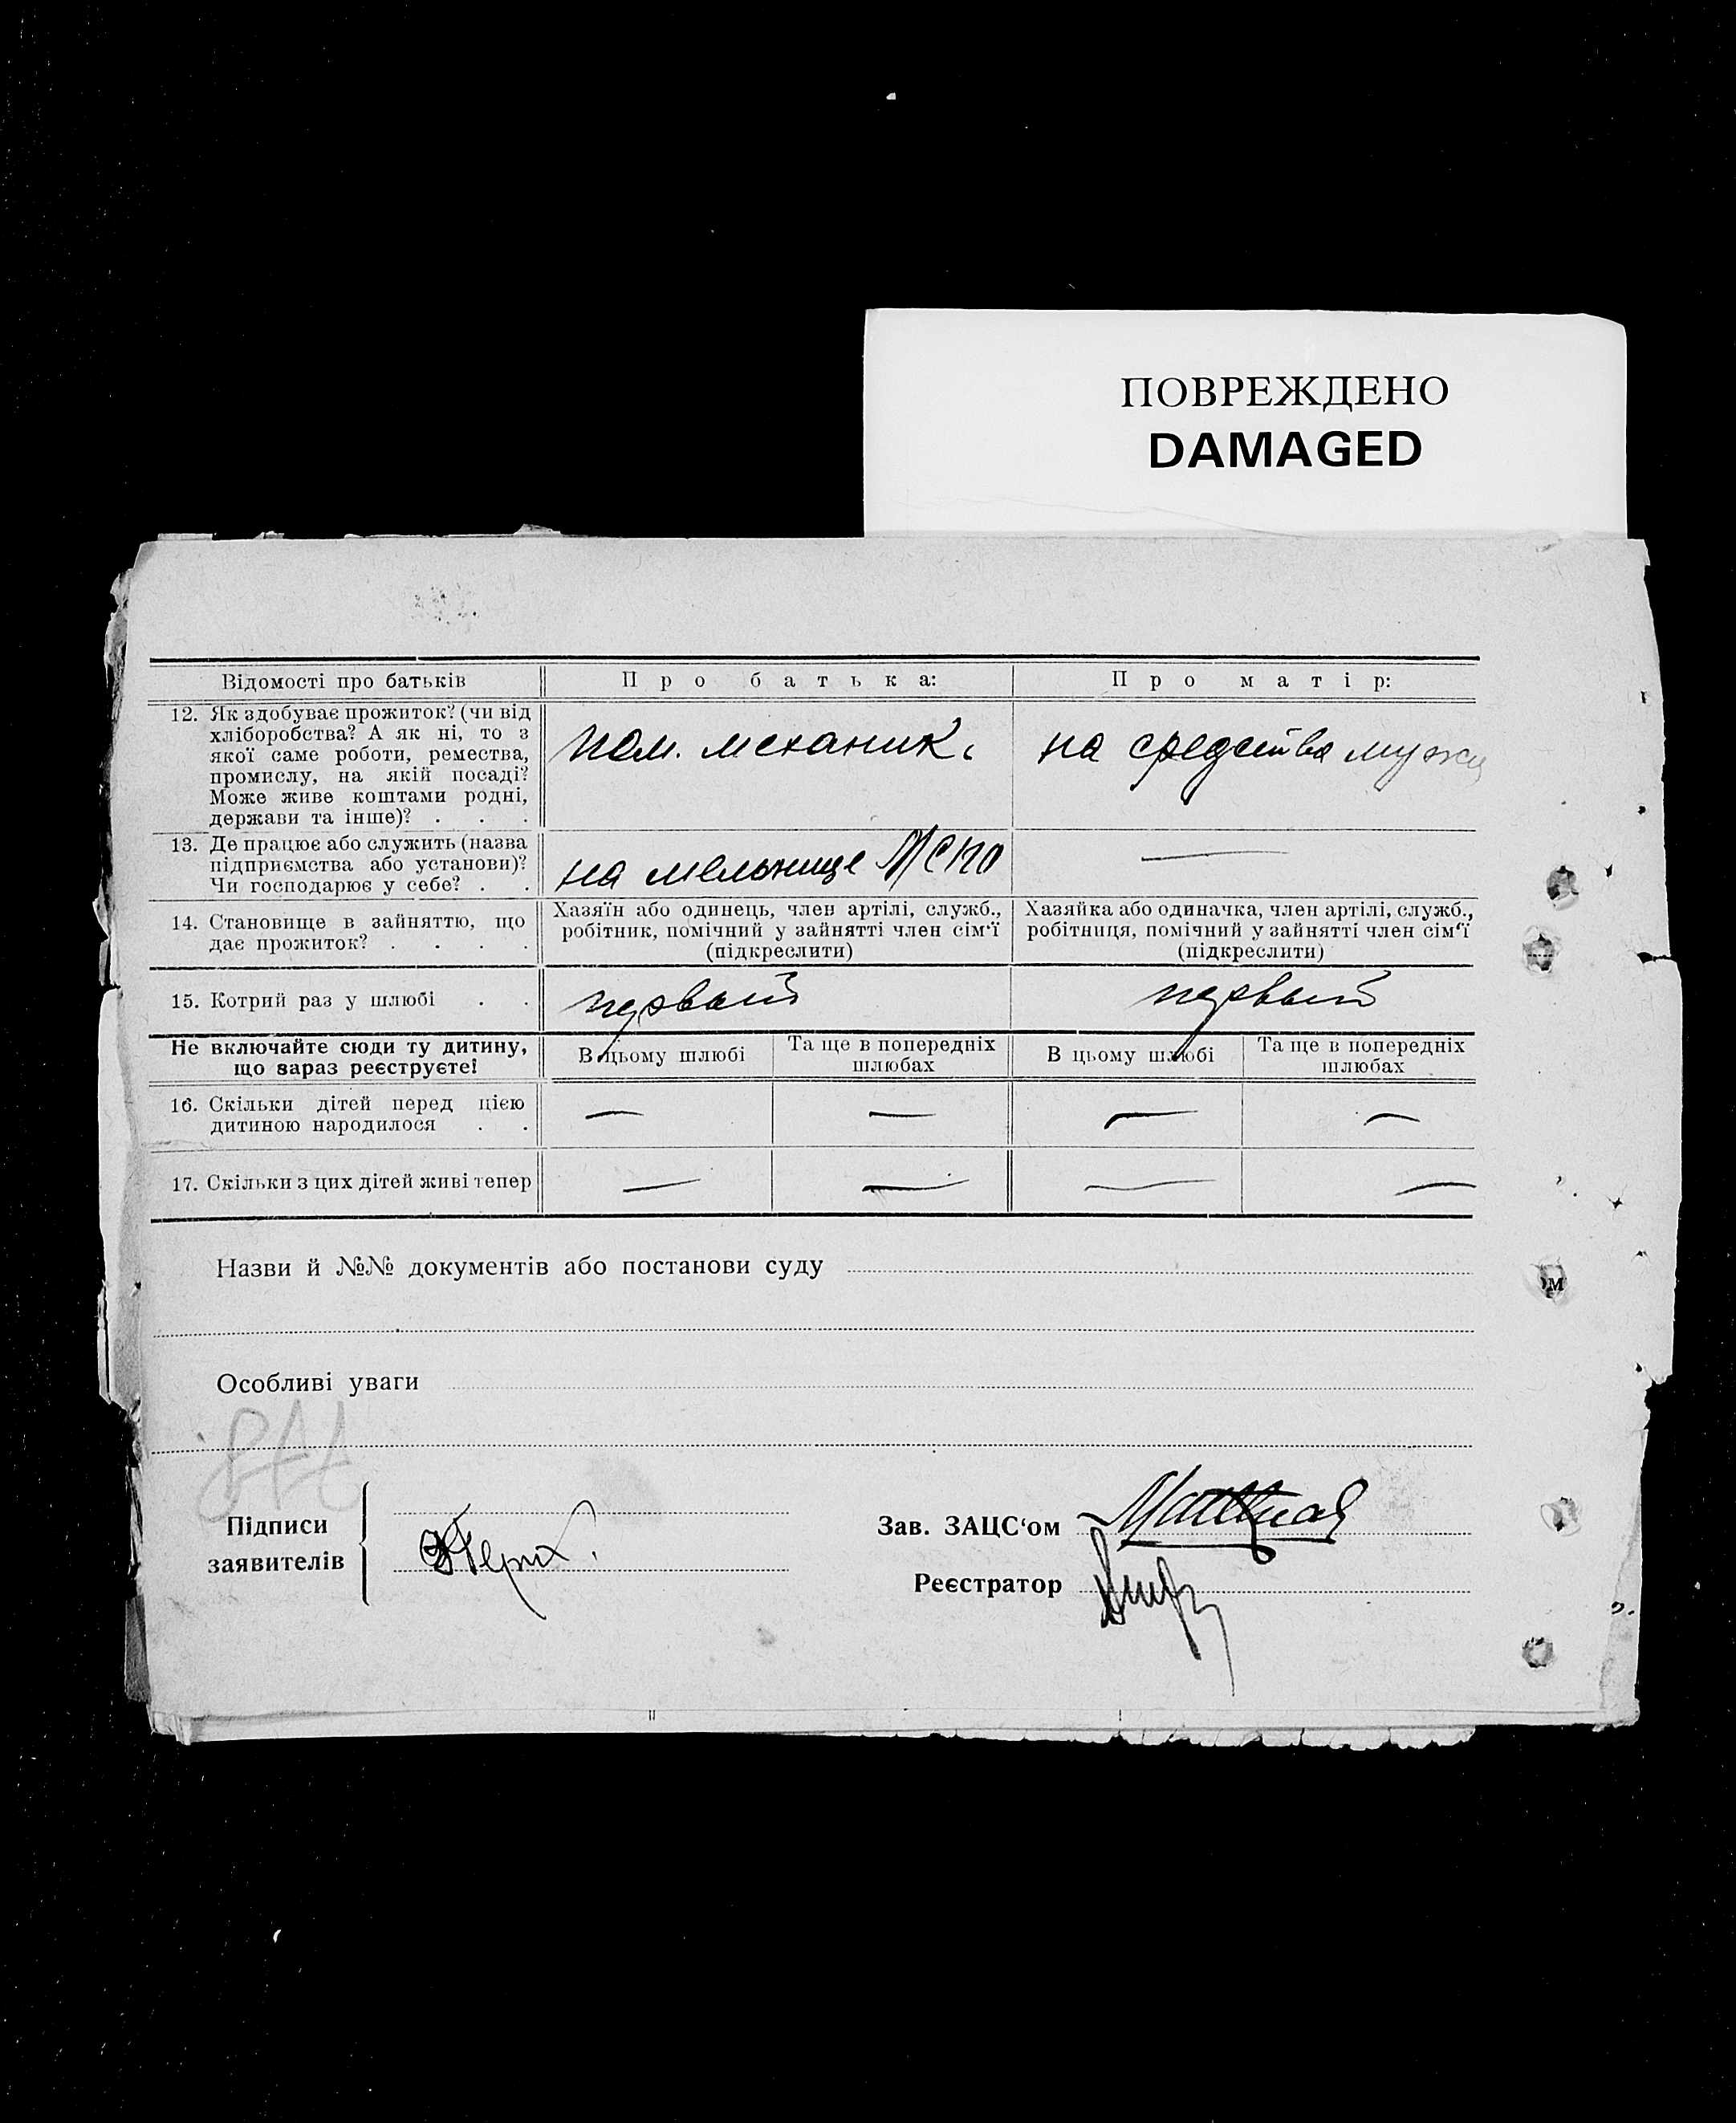 ПОВРЕЖДЕНО
DAMAGED
Відомості про батьків
Про батька:
Про матір:
12. Як здобуває прожиток? (чи від
хліборобства? А як ні, то з
якої саме роботи, ремества,
промислу, на якій посаді?
Може живе коштами родні,
держави та інше)? . . .
пом. механик.
на средства мужа
13. Де працює або служить (назва
підприємства або установи)?
Чи господарює у себе? . .
на мельнице
14. Становище в зайняттю, що
дає прожиток? . . . .
Хазяїн або одинець, член артілі, служб.,
робітник, помічний у зайнятті член сім'ї
(підкреслити)
Хазяйка або одиначка, член артілі, служб.,
робітниця, помічний у зайнятті член сім'ї
(підкреслити)
15. Котрий раз у шлюбі . .
первый
первый
Не включайте сюди ту дитину,
що зараз реєструєте!
В цьому шлюбі
Та ще в попередніх
шлюбах
В цьому шлюбі
Та ще в попередніх
шлюбах
16. Скільки дітей перед цією
дитиною народилося . .
— — — —
17. Скільки з цих дітей живі тепер
— — — —
Назви й №№ документів або постанови суду
Особливі уваги
Підписи
заявителів
Зав. ЗАЦС'ом
Реєстратор